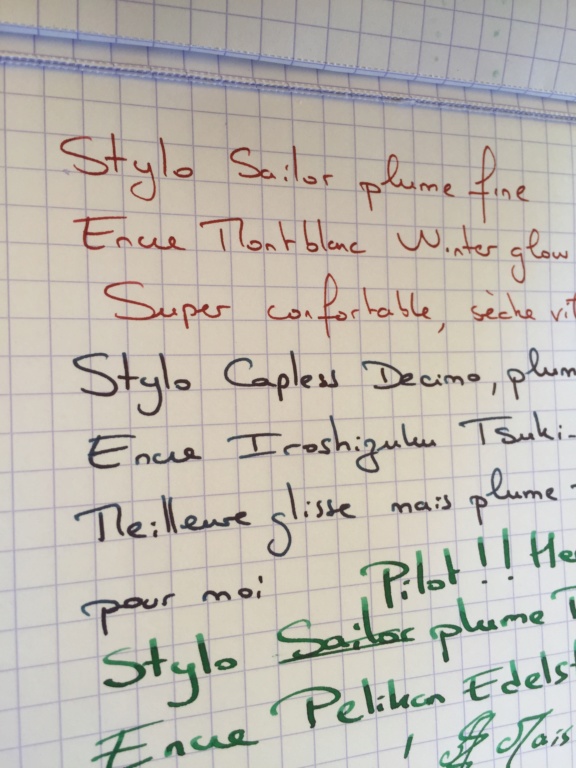 Stylo Sailor plume fine
Encre Montblanc Winter glow
Super confortable, sèche vit
Stylo Capless Decimo, plum
Encre Iroshizuku Tsuki-
Meilleure glisse mais plume
pour moi
Pilot!! He
Stylo Sailor plume
Encre Pelikan Edelst
Mais